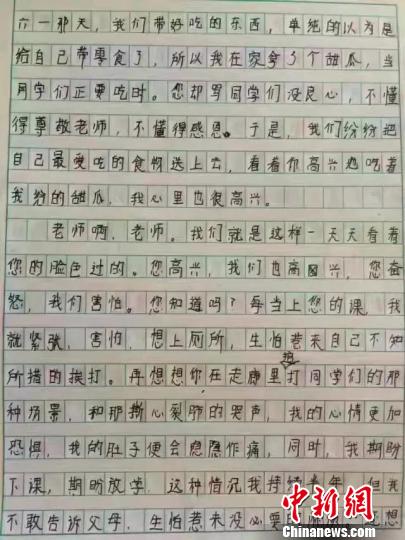 六一那天，我们带好吃的东西，单纯的以为是
给自己带零食了，所以我在家拿了个甜瓜，当
同学们正要吃时。您却骂同学们没良心，不懂
得尊敬老师，不懂得感恩。于是，我们纷纷把
自己最爱吃的食物送上去，看着你高兴地吃着
我给的甜瓜，我心里也很高兴。
老师啊，老师。我们就是这样一天天看着
您的脸色过的。您高兴，我们也高兴，您奋
怒，我们害怕。您知道吗？每当上您的课，我
就紧张，害怕，想上厕所，生怕惹来自己不知
所措的挨打。再想想你在走廊里抱打同学们的那
种场景，和那撕心裂肺的哭声，我的心情更加
恐惧，我的肚子便会隐隐作痛，同时，我期盼
下课，期盼放学，这种情况我持续半年，但我
不敢告诉父母，生怕惹来没必要
想
中新网
www.chinanews.com